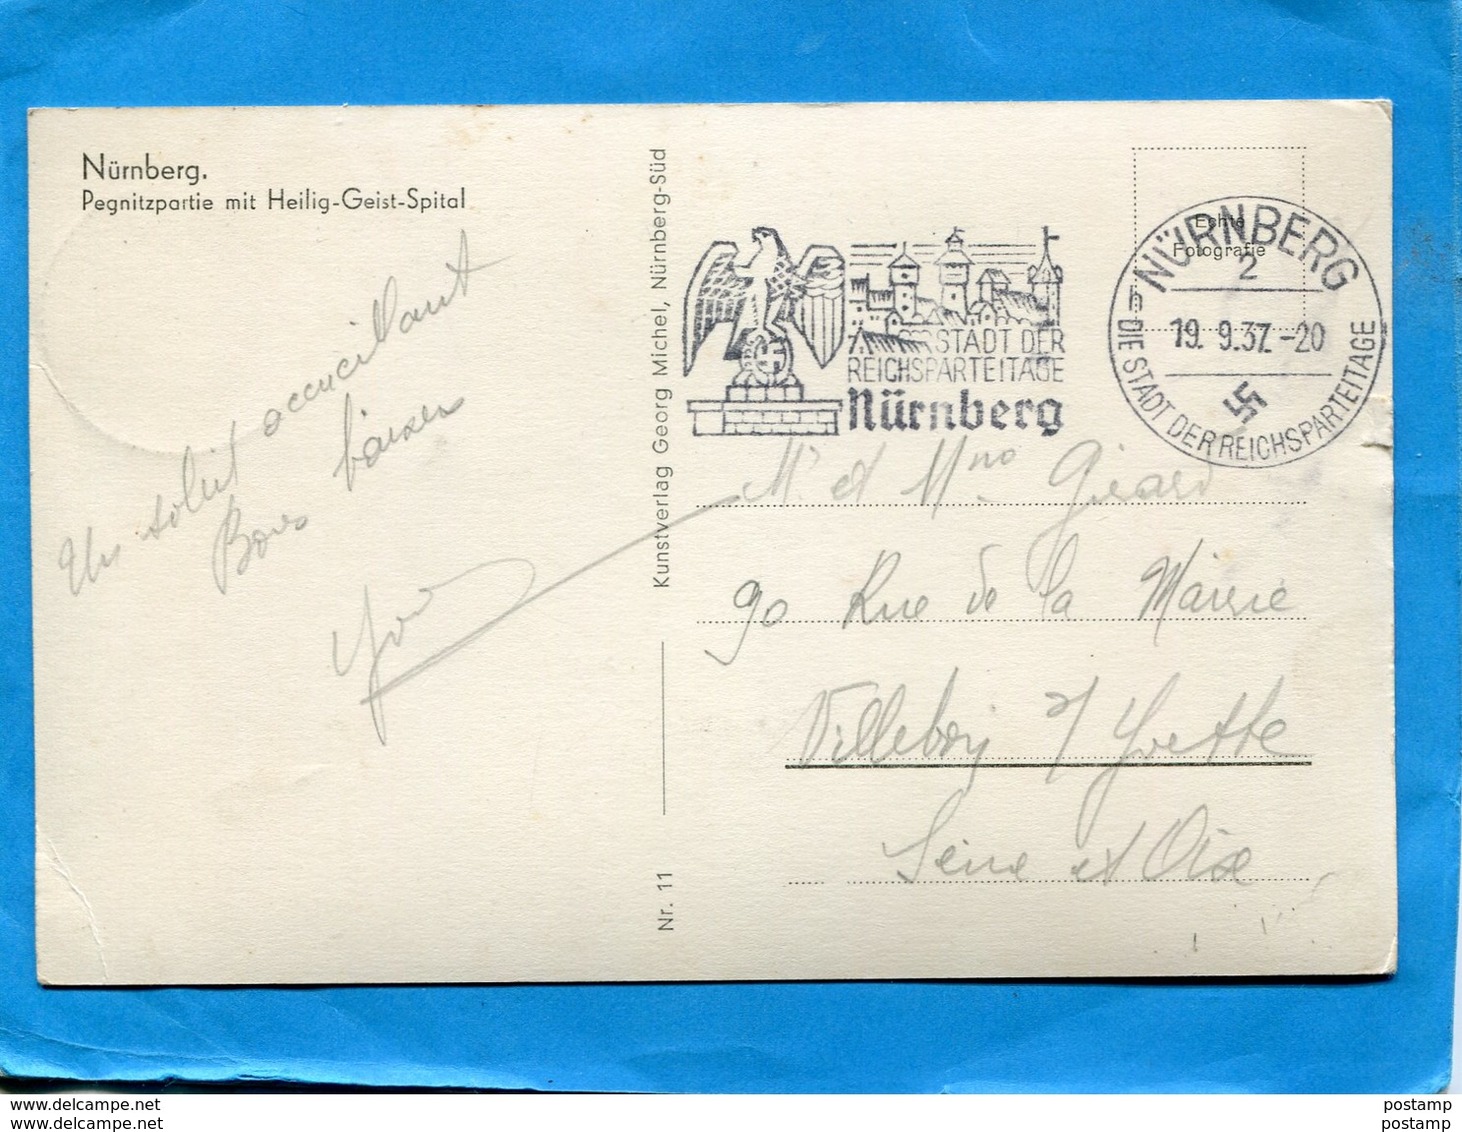 Nürnberg.
Pegnitzpartie mit Heilig-Geist-Spital
Un soleil accueillant
Bons baisers
Kunstverlag Georg Michel, Nürnberg-Süd
Nr. 11
STADT DER
REICHSPARTEITAGE
Nürnberg
Echte
Fotografie
NÜRNBERG
2
h
19. 9.37.-20
DIE STADT DER REICHSPARTEITAGE
Mr et Mme Girard
90 Rue de la Mairie
Villebon s/ Yvette
Seine et Oise
www.delcampe.net
www.delcampe.net
postamp
postamp